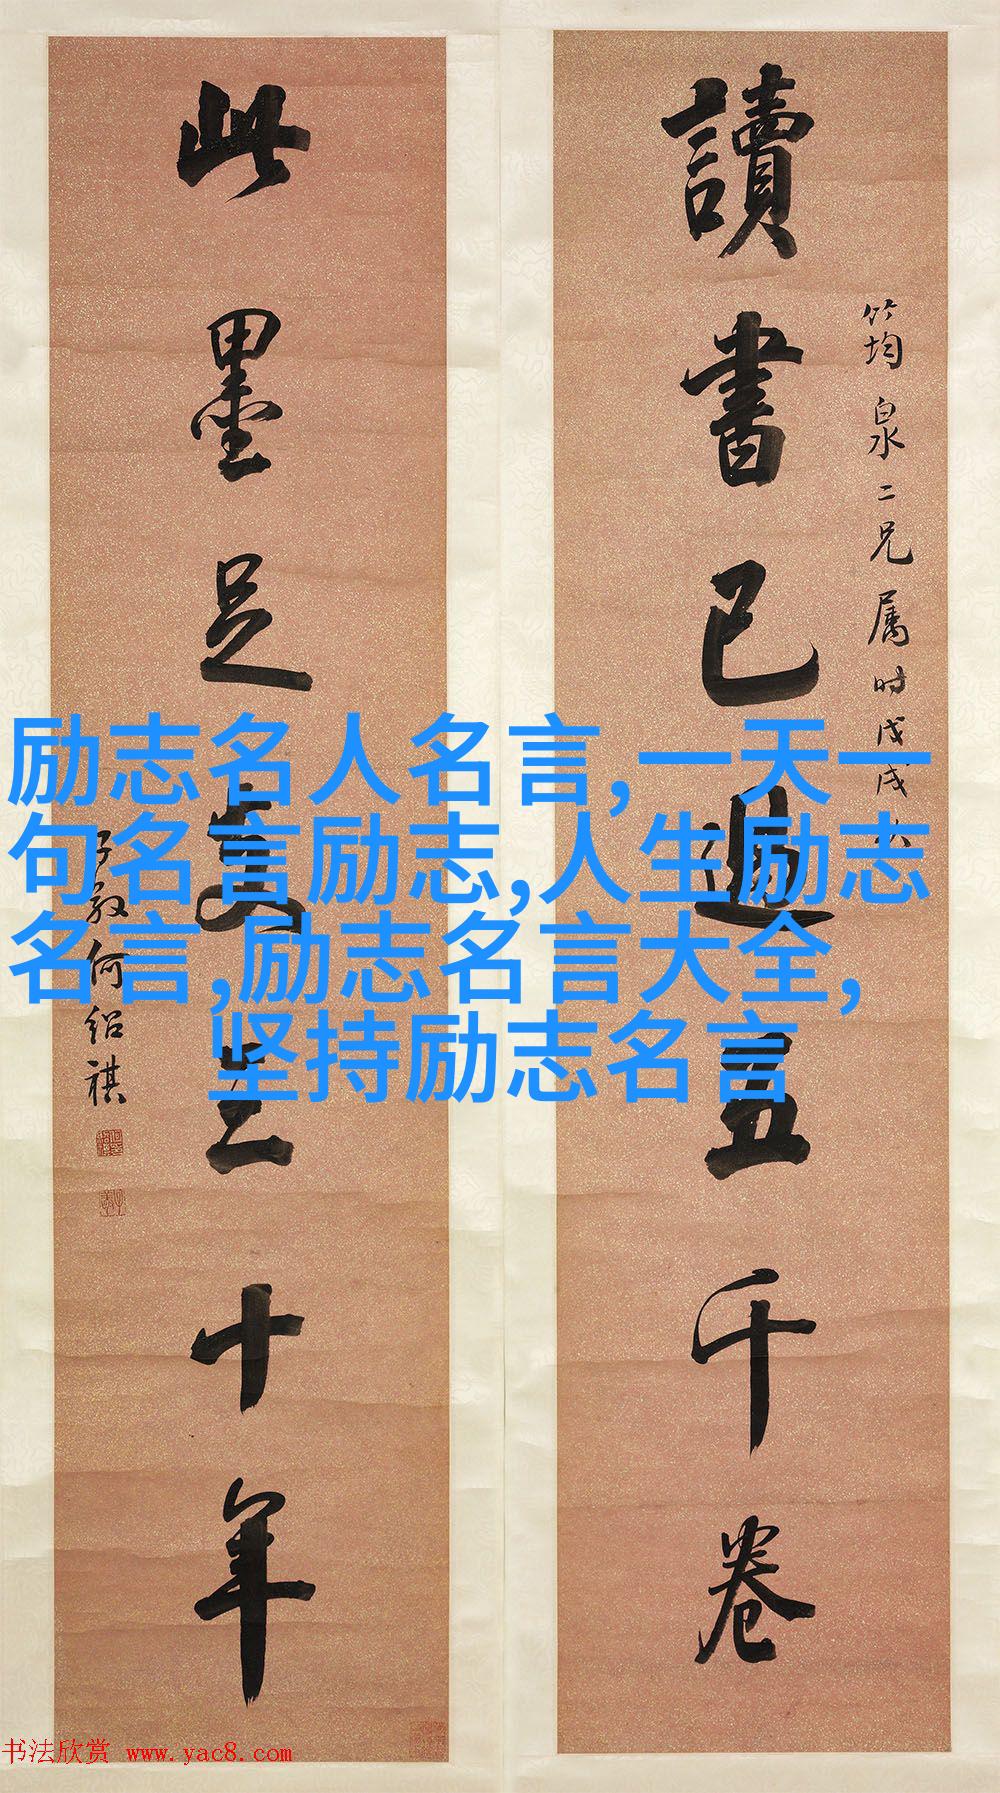 讀書已過五千卷
筠泉二兄属时戊戌
此墨足支三十年
子敬何绍祺
励志名人名言,一天一
句名言励志,人生励志
名言,励志名言大全,
坚持励志名言
书法欣赏 www.yac8.com